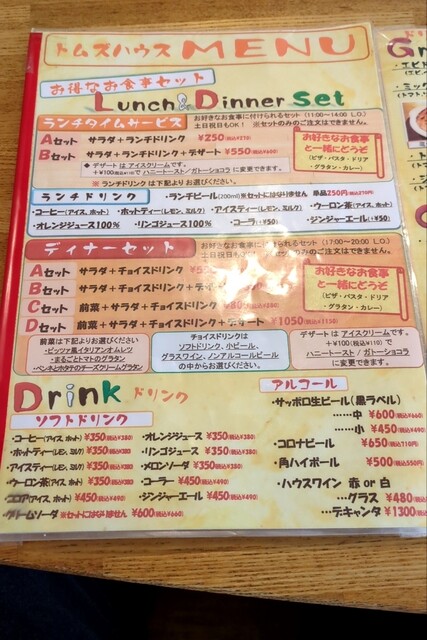 トムズハウス MENU
お得なお食事セット
Lunch & Dinner Set
ランチタイムサービス
お好きなお食事に付けられるセット (11:00~14:00 L.O.)
土日祝日もOK! ※セットのみのご注文はできません。
Aセット サラダ+ランチドリンク ¥250
Bセット サラダ+ランチドリンク+デザート ¥550
◆ デザートはアイスクリームです。
+¥100 でハニートースト/ガトーショコラに変更できます。
※ ランチドリンクは下記よりお選びください。
お好きなお食事
と一緒にどうぞ
(ピザ・パスタ・ドリア
・グラタン・カレー)
ランチドリンク
・ランチビール(200ml)※セットにはなりません 単品250円
・コーヒー(アイス, ホット) ・ホットティー(レモン, ミルク) ・アイスティー(レモン, ミルク) ・ウーロン茶(アイス, ホット)
・オレンジジュース100% ・リンゴジュース100% ・コーラ(+50) ・ジンジャーエール(+50)
ディナーセット
お好きなお食事に付けられるセット (17:00~20:00 L.O.)
土日祝日もOK! ※セットのみのご注文はできません。
Aセット サラダ+チョイスドリンク
Bセット サラダ+チョイスドリンク+デザート
Cセット 前菜+サラダ+チョイスドリンク
Dセット 前菜+サラダ+チョイスドリンク+デザート ¥1050(税込¥1150)
お好きなお食事
と一緒にどうぞ
(ピザ・パスタ・ドリア
・グラタン・カレー)
前菜は下記よりお選びください
・ピッツァ風イタリアンオムレツ
・まるごとトマトのグラタン
・ベンネとホタテのチーズクリームグラタン
チョイスドリンクは
ソフトドリンク, 小ビール,
グラスワイン, ノンアルコールビール
の中からお選びください。
デザートは アイスクリームです。
+¥100(税込¥110)で
ハニートースト/ガトーショコラ
に変更できます。
Drink ドリンク
ソフトドリンク
・コーヒー(アイス, ホット) ¥350(税込¥380)
・ホットティー(レモン, ミルク) ¥350(税込¥380)
・アイスティー(レモン, ミルク) ¥350(税込¥380)
・ウーロン茶(アイス, ホット) ¥350(税込¥380)
・ココア(アイス, ホット) ¥450(税込¥490)
・クリームソーダ ※セットにはなりません ¥600(税込¥660)
・オレンジジュース ¥350(税込¥380)
・リンゴジュース ¥350(税込¥380)
・メロンソーダ ¥450(税込¥490)
・コーラ ¥450(税込¥490)
・ジンジャーエール ¥450(税込¥490)
アルコール
・サッポロ生ビール(黒ラベル)
……中 ¥600(税込¥660)
……小 ¥450(税込¥490)
・コロナビール ¥650
・角ハイボール ¥500
・ハウスワイン 赤 or 白
…グラス ¥480
…デキャンタ ¥1300